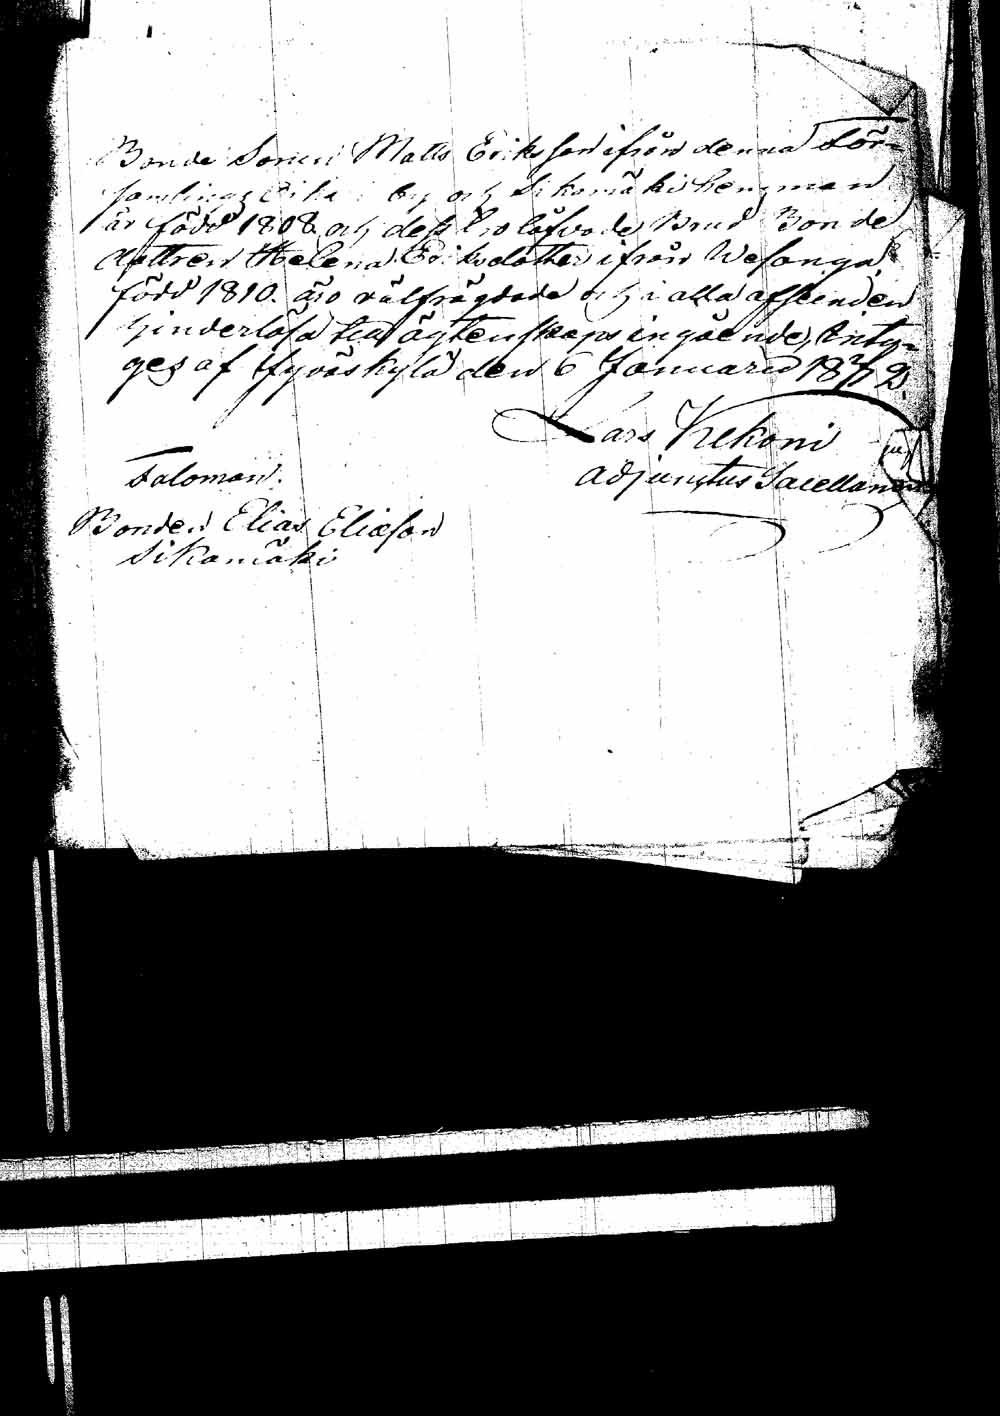 Bonde Sonen Matts Eriksson ifrån denna För-
samling by och Sikamäki hemman
är född 1808. och dess trolofvade Brud Bonde
dottren Helena Eriksdotter ifrån Wesanga,
född 1810. äro välfrägdade och i alla afseenden
hinderlösa till ägtenskaps ingående, Inty-
ges af Jyväskylä den 6 Januarii
Lars Kekoni
adjunctus Sacellani
Taloman.
Bonden Elias Eliasson
Sikamäki